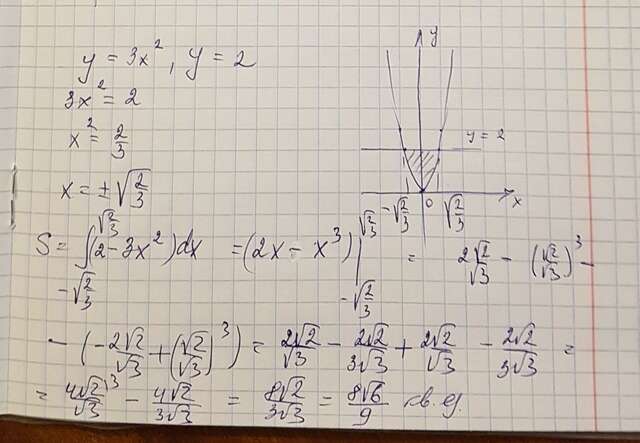 y = 3x², y = 2
3x² = 2
x² = 2/3
x = ±√(2/3)
y
y = 2
-√(2/3) 0 √(2/3) x
S = ∫_{-√(2/3)}^{√(2/3)} (2 - 3x²)dx = (2x - x³) |_{-√(2/3)}^{√(2/3)} = 2√2/√3 - (√2/√3)³ -
- (-2√2/√3 + (√2/√3)³) = 2√2/√3 - 2√2/3√3 + 2√2/√3 - 2√2/3√3 =
= 4√2/√3 ³⁾ - 4√2/3√3 = 8√2/3√3 = 8√6/9 кв. ед.